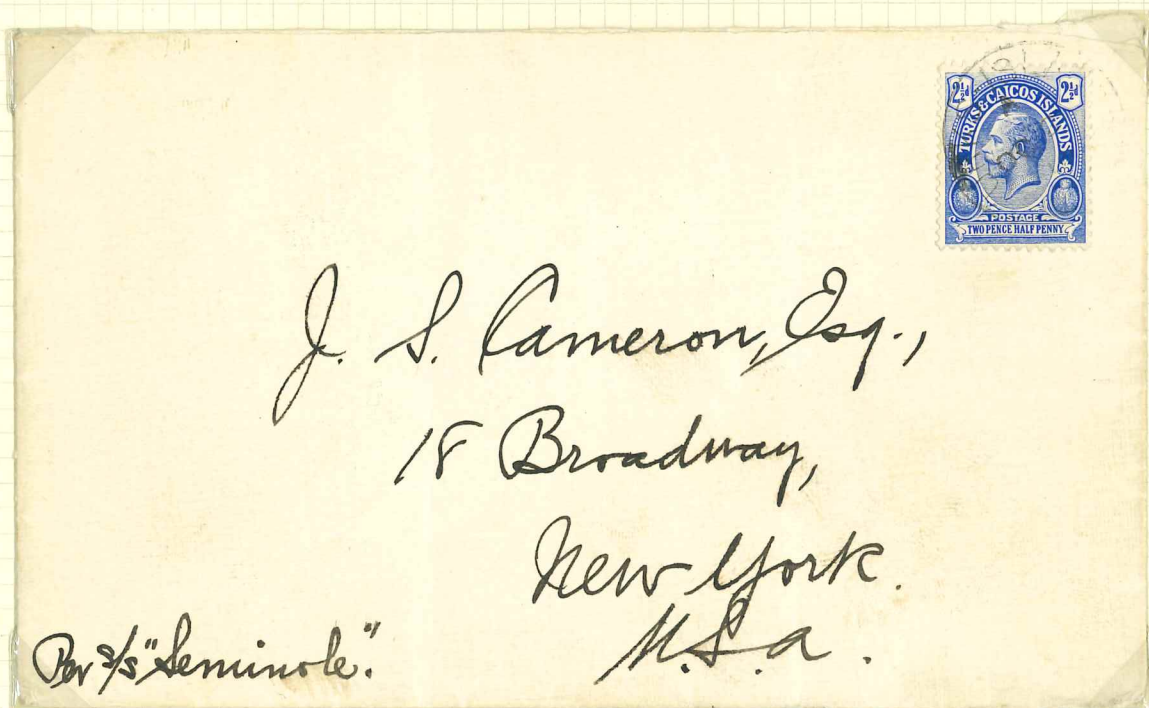 2½d 2½d
TURKS & CAICOS ISLANDS
POSTAGE
TWO PENCE HALF PENNY
J. S. Cameron, Esq.,
18 Broadway,
New York.
U.S.A.
Per S/S "Seminole".